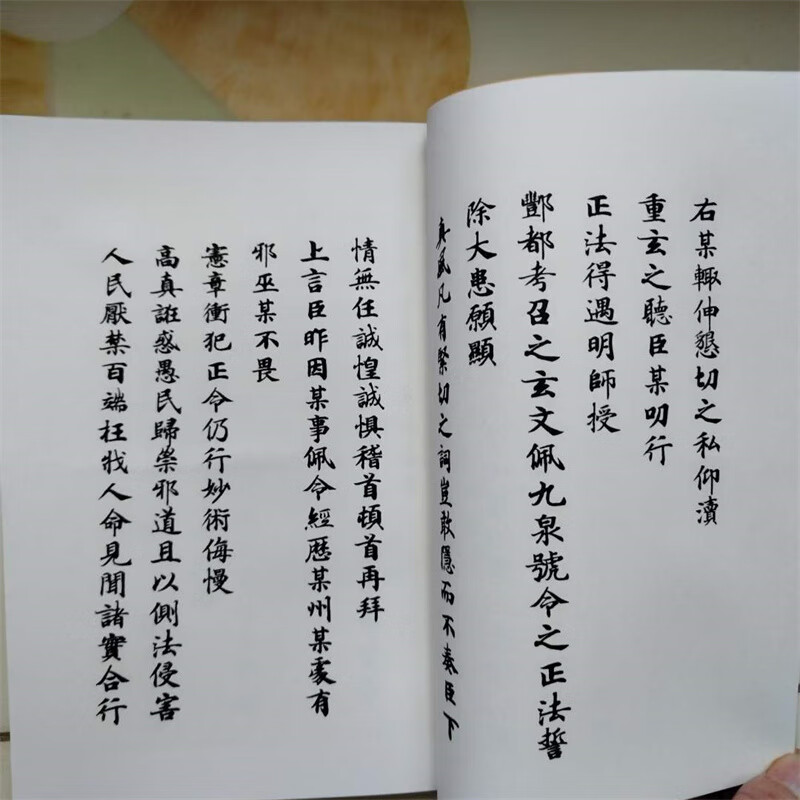 右某輙伸懇切之私仰瀆
重玄之聽臣某叨行
正法得遇明師授
酆都考召之玄文佩九泉號令之正法誓
除大患願顯
真風凡有緊切之詞豈敢隱而不奏臣下
情無任誠惶誠惧稽首頓首再拜
上言臣昨因某事佩令經歷某州某處有
邪巫某不畏
憲章衝犯正令仍行妙術侮慢
高真誑惑愚民歸祟邪道且以側法侵害
人民厭禁百端枉戕人命見聞諸實合行